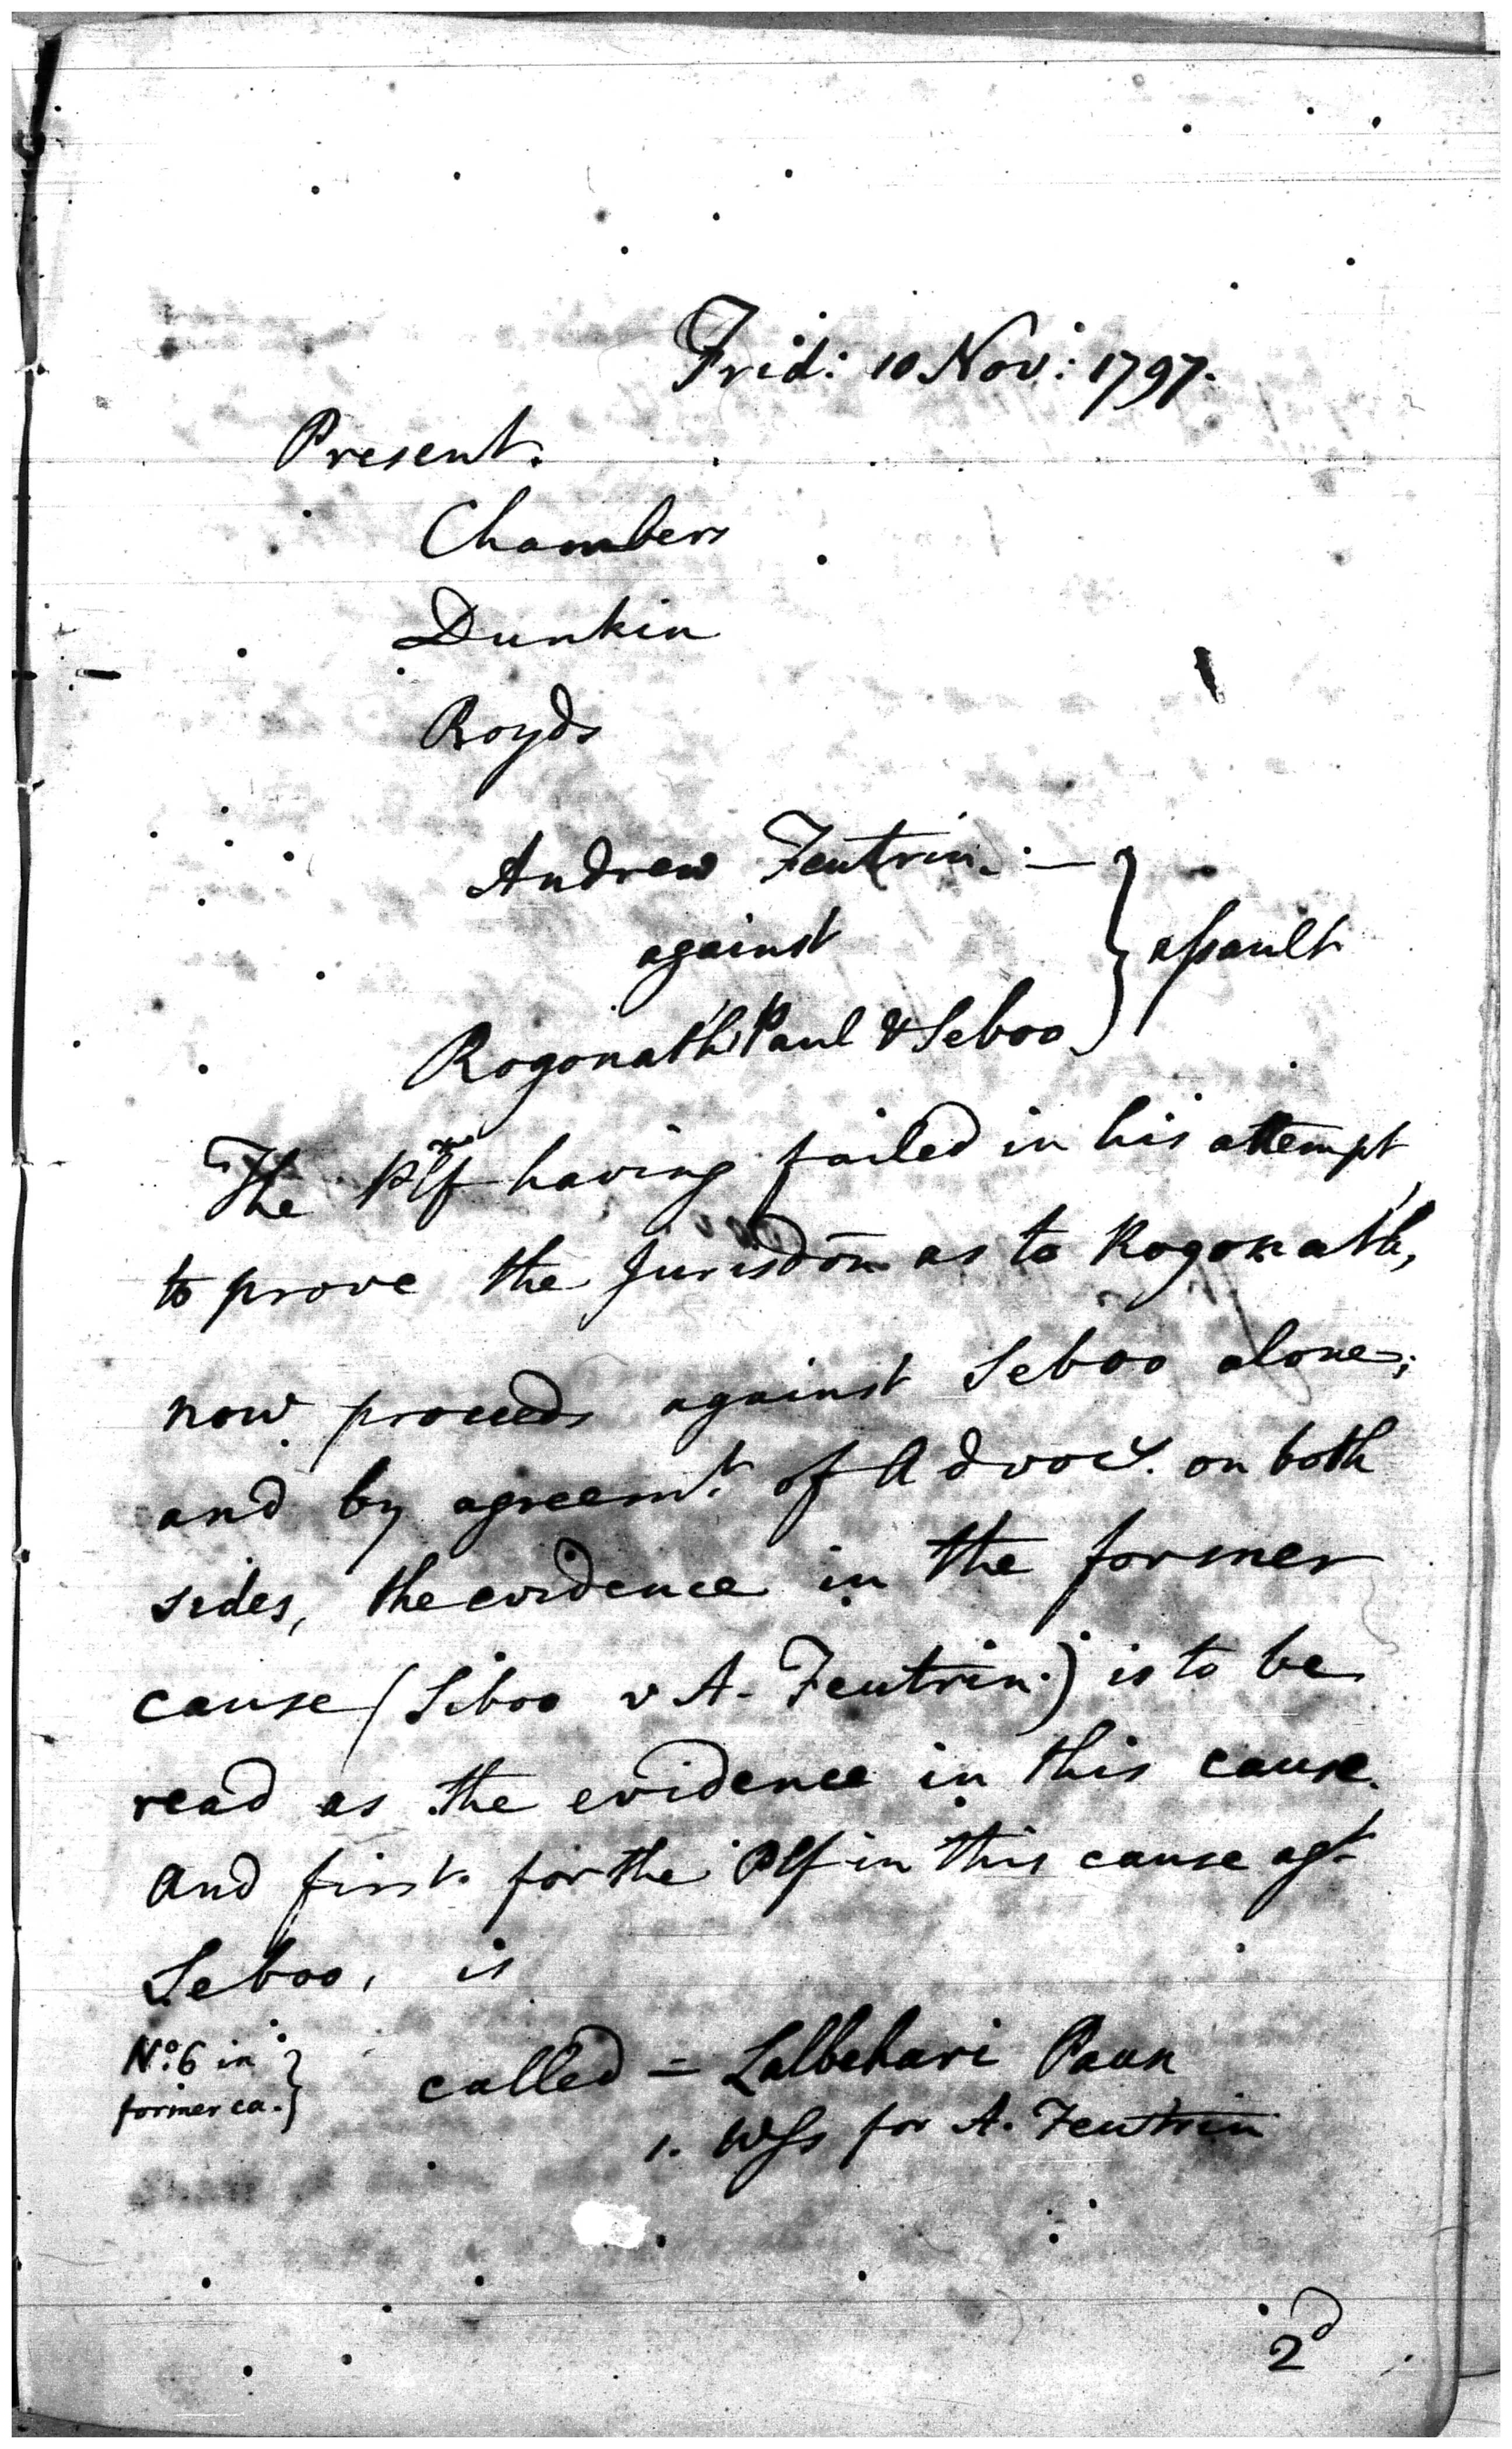 Frid: 10 Nov: 1797.
Present.
Chambers
Dunkin
Royds
Andrew Feutrin. —
against } assault
Rogonath Paul & Seboo
The Plf having failed in his attempt
to prove the Jurisdōn as to Rogonath,
now proceeds against Seboo alone;
and by agreemt. of Advocs. on both
sides, the evidence in the former
cause (Siboo v A. Feutrin.) is to be
read as the evidence in this cause.
And first. for the Plf in this cause agt
Seboo, is
No. 6 in }
former ca. }
called = Lalbehari Paun
1. Wss for A. Feutrin
2d